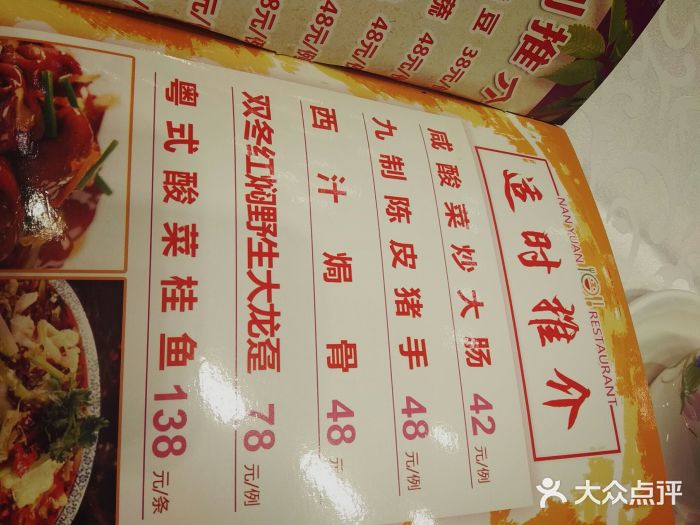 适时推介
NAN YUAN RESTAURANT
咸酸菜炒大肠 42元/例
九制陈皮猪手 48元/例
西汁焗骨 48元/例
双冬红焖野生大龙趸 78元/例
粤式酸菜桂鱼 138元/条
推介
豆 38元/
48元/
48元/
48元/
大众点评